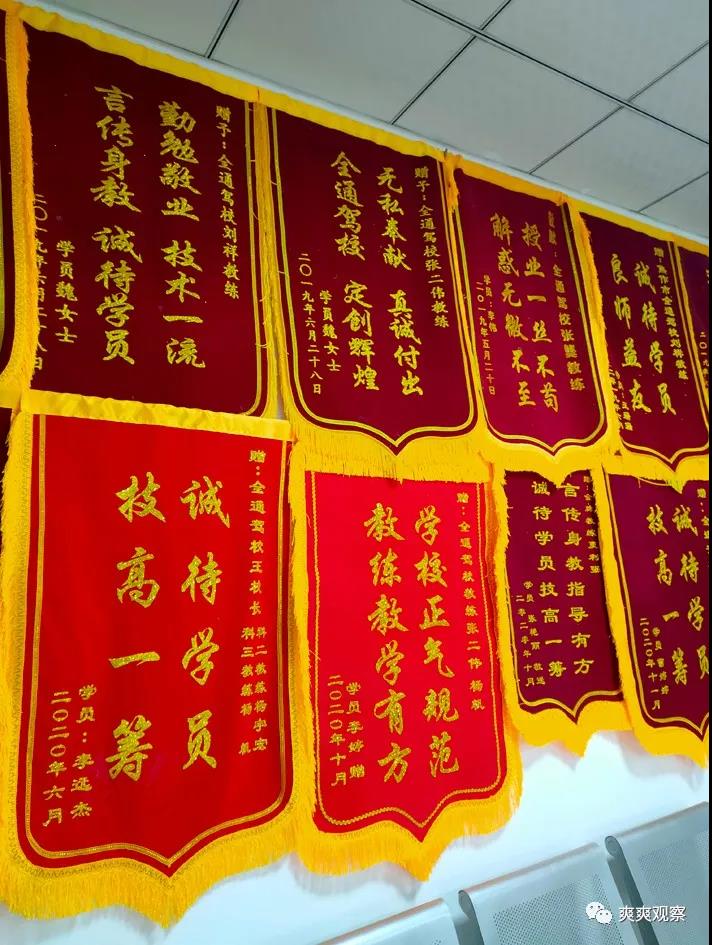 赠予:全通驾校刘祥教练
勤勉敬业 技术一流
言传身教 诚待学员
学员魏女士
赠予:全通驾校张二伟教练
无私奉献 真诚付出
全通驾校 定创辉煌
学员魏女士
二〇一九年六月二十八日
全通驾校张 教练
授业一丝不苟
解惑无微不至
学员:李伟
二〇一九年五月二十日
全通驾校刘祥教练
诚待学员
良师益友
赠:全通驾校王校长
科二教练杨宇宏
科三教练杨帆
诚待学员
技高一筹
学员:李远杰
二〇二〇年六月
赠:全通驾校教练张二伟 杨帆
学校正气规范
教练教学有方
学员李婷赠
二〇二〇年十月
言传身教指导有方
诚待学员技高一筹
学员:张艳丽敬送
二零二零年十月
诚待学员
技高一筹
二〇二〇年十一月
爽爽观察